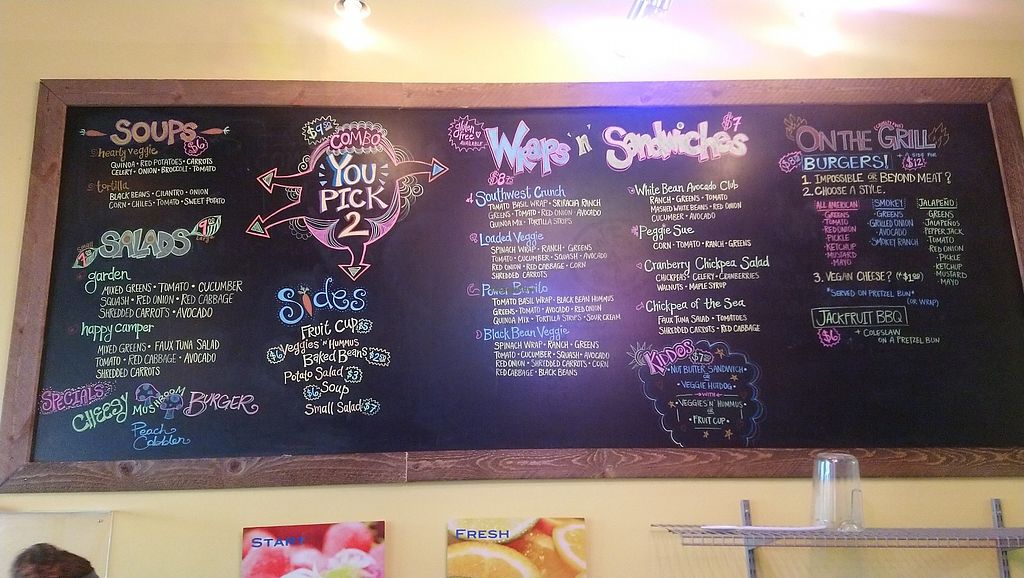 SOUPS
$6
hearty veggie
QUINOA • RED POTATOES • CARROTS
CELERY • ONION • BROCCOLI • TOMATO
tortilla
BLACK BEANS • CILANTRO • ONION
CORN • CHILES • TOMATO • SWEET POTATO
SALADS
small
large
garden
MIXED GREENS • TOMATO • CUCUMBER
SQUASH • RED ONION • RED CABBAGE
SHREDDED CARROTS • AVOCADO
happy camper
MIXED GREENS • FAUX TUNA SALAD
TOMATO • RED CABBAGE • AVOCADO
SHREDDED CARROTS
SPECIALS
CHEESY MUSHROOM BURGER
Peach
Cobbler
COMBO
YOU
PICK
2
Sides
FRUIT CUP
VEGGIES 'N' HUMMUS
BAKED BEANS
POTATO SALAD $3
$6 SOUP
SMALL SALAD $7
gluten
free
AVAILABLE
Wraps 'n' Sandwiches
$7
Southwest Crunch
TOMATO BASIL WRAP • SRIRACHA RANCH
GREENS • TOMATO • RED ONION • AVOCADO
QUINOA MIX • TORTILLA STRIPS
Loaded Veggie
SPINACH WRAP • RANCH • GREENS
TOMATO • CUCUMBER • SQUASH • AVOCADO
RED ONION • RED CABBAGE • CORN
SHREDDED CARROTS
Power Burrito
TOMATO BASIL WRAP • BLACK BEAN HUMMUS
GREENS • TOMATO • AVOCADO • RED ONION
QUINOA MIX • TORTILLA STRIPS • SOUR CREAM
Black Bean Veggie
SPINACH WRAP • RANCH • GREENS
TOMATO • CUCUMBER • SQUASH • AVOCADO
RED ONION • SHREDDED CARROTS • CORN
RED CABBAGE • BLACK BEANS
White Bean Avocado Club
RANCH • GREENS • TOMATO
MASHED WHITE BEANS • RED ONION
CUCUMBER • AVOCADO
Peggie Sue
CORN • TOMATO • RANCH • GREENS
Cranberry Chickpea Salad
CHICKPEAS • CELERY • CRANBERRIES
WALNUTS • MAPLE SYRUP
Chickpea of the Sea
FAUX TUNA SALAD • TOMATOES
SHREDDED CARROTS • RED CABBAGE
KIDDOS
NUT BUTTER SANDWICH
OR
VEGGIE HOTDOG
WITH
VEGGIES 'N' HUMMUS
OR
FRUIT CUP
ON THE GRILL
BURGERS!
+ SIDE FOR
$12
1. IMPOSSIBLE OR BEYOND MEAT?
2. CHOOSE A STYLE.
ALL AMERICAN
GREENS
TOMATO
RED ONION
PICKLE
KETCHUP
MUSTARD
MAYO
SMOKEY
GREENS
GRILLED ONION
AVOCADO
SMOKEY RANCH
JALAPEÑO
GREENS
JALAPEÑOS
PEPPER JACK
TOMATO
RED ONION
PICKLE
KETCHUP
MUSTARD
MAYO
3. VEGAN CHEESE?
*SERVED ON PRETZEL BUN*
(OR WRAP)
JACKFRUIT BBQ
$6
+ COLESLAW
ON A PRETZEL BUN
START
FRESH